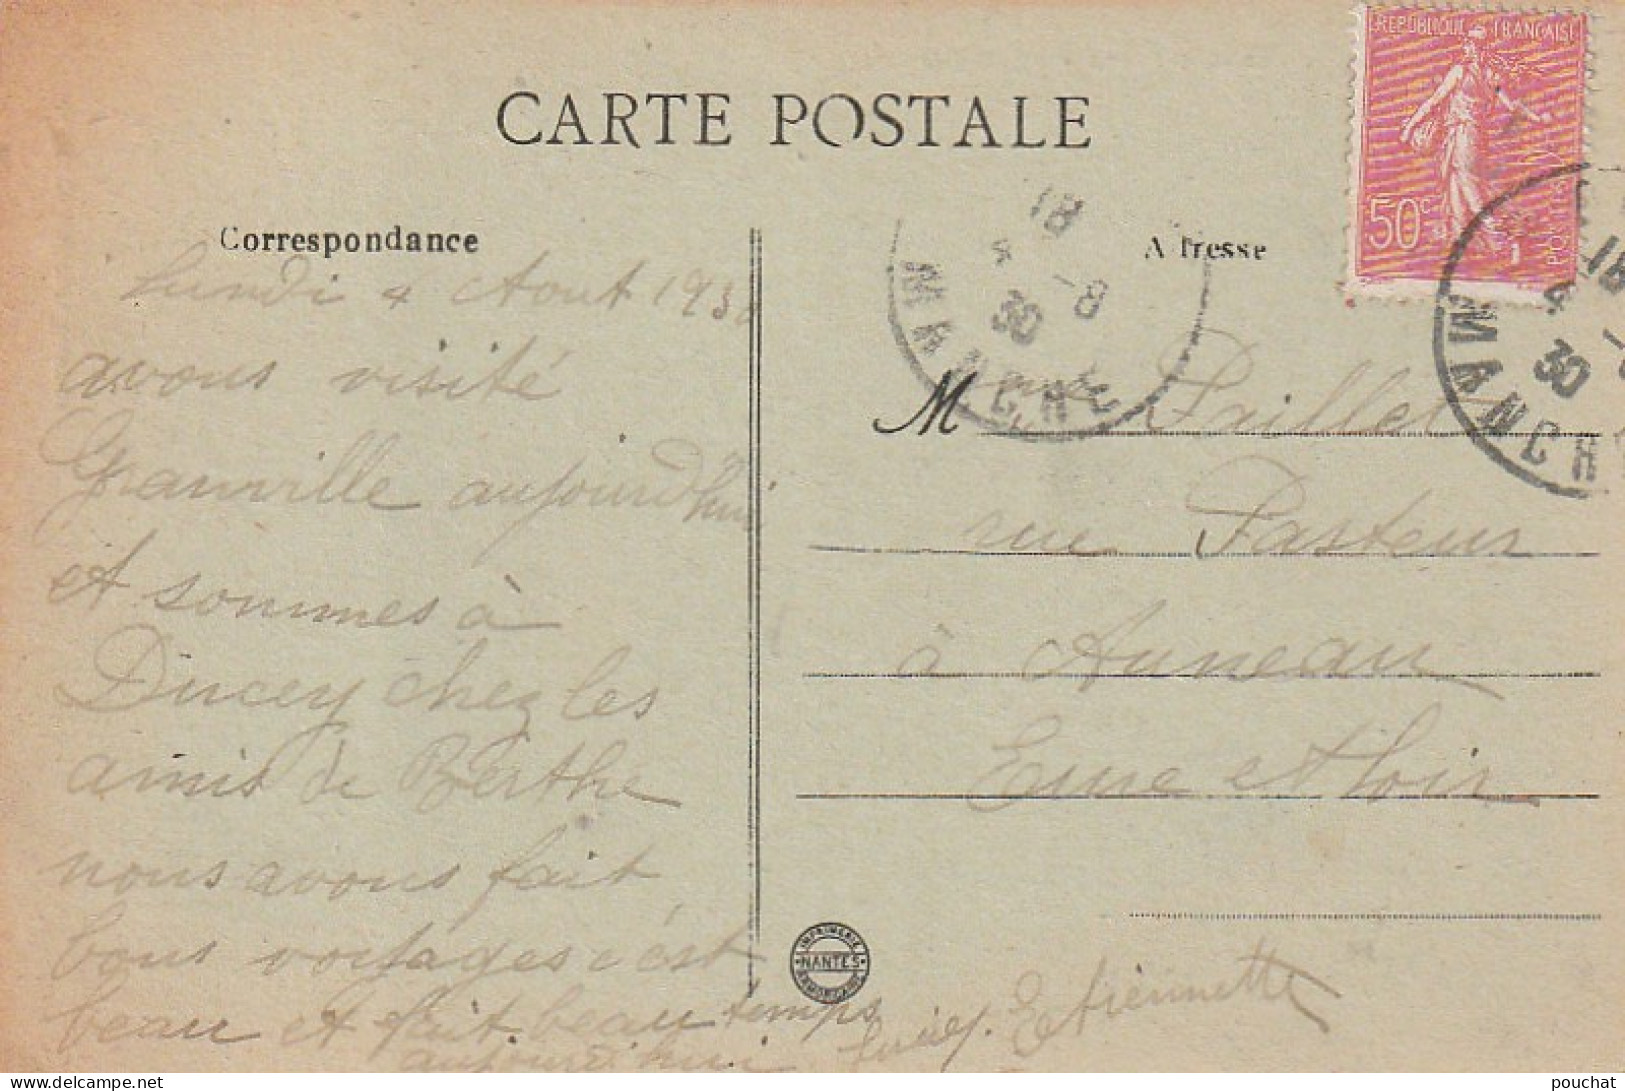 CARTE POSTALE
RÉPUBLIQUE FRANÇAISE
50c
POSTES
Correspondance
Adresse
18
4 -8
30
MANCHE
18
4 -
30
MANCH
Lundi 4 Aout 1930
avons visité
Granville aujourd'hui
et sommes à
Ducey chez les
amis de Berthe
nous avons fait
bons voyages c'est
beau et fait beau temps
aujourd'hui
Etiennette
M Paillet
rue Pasteur
à Auneau
Eure et Loir
IMPRIMERIE
NANTES
ARMORICAINE
pouchat